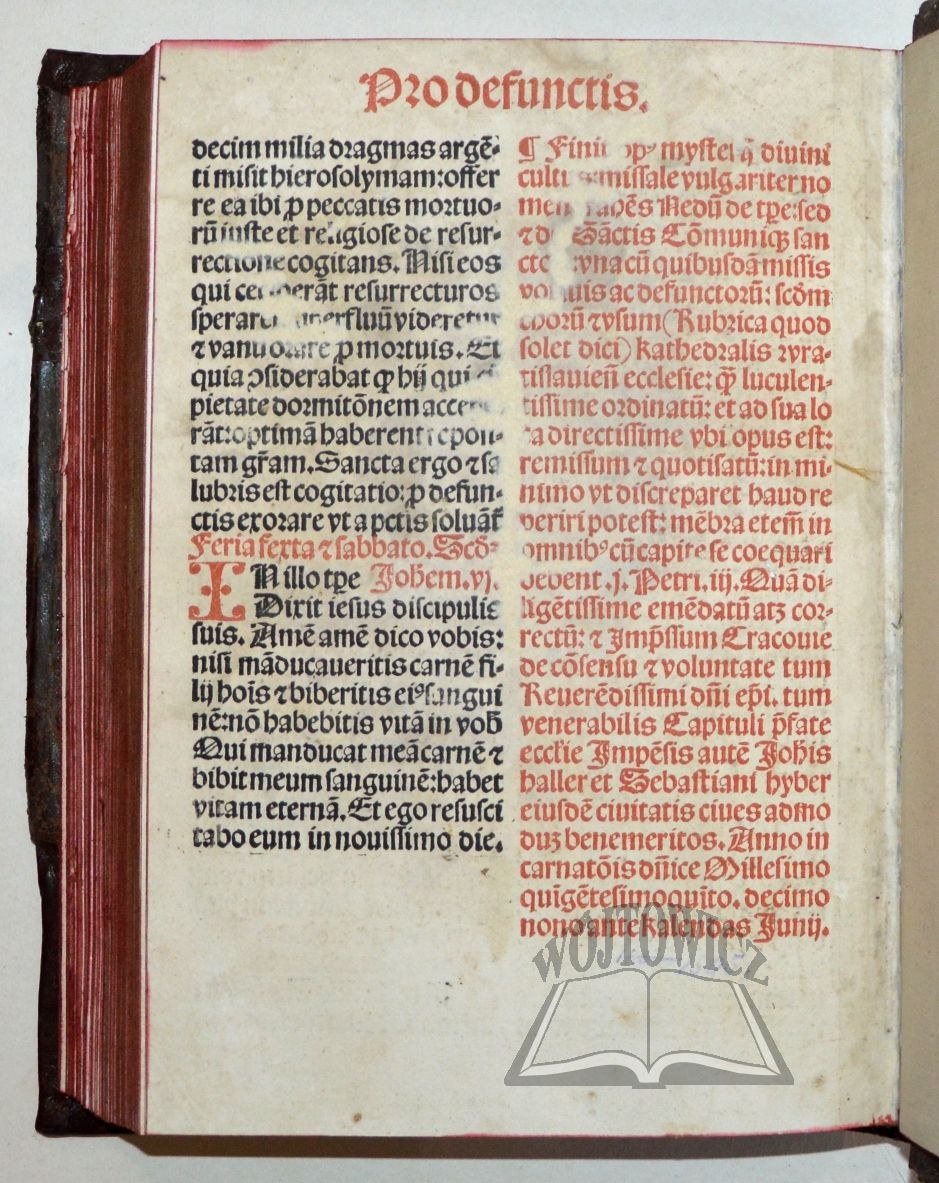 Pro defunctis.
decim milia dragmas argē⸗
ti misit hierosolymam: offer
re ea ibi ꝓ peccatis mortuo⸗
rū iuste et religiose de resur⸗
rectione cogitans. Nisi eos
qui ceciderāt resurrecturos
speraret superfluū videretur
⁊ vanū orare ꝓ mortuis. Et
quia ꝯsiderabat ꝙ hij qui cū
pietate dormitōnem accepe
rāt: optimā haberent repoſi⸗
tam gr̄am. Sancta ergo ⁊ sa
lubris est cogitatio: ꝓ defun⸗
ctis exorare vt a pctis soluāt̄
Feria sexta ⁊ sabbato. Scd̄⸗
IN illo tp̄e Johem. vj.
Dixit iesus discipulis
suis. Amē amē dico vobis:
nisi māducaueritis carnē fi⸗
lij hoīs ⁊ biberitis eiꝰ sangui
nē: nō habebitis vitā in vob̄
Qui manducat meā carnē ⁊
bibit meum sanguinē: habet
vitam eternā. Et ego resusci
tabo eum in nouissimo die.
¶ mystei diuini
culti missale vulgariter no
Nedū de tp̄e: sed
⁊ d Sāctis Cōmuniqꝫ san
vna cū quibusdā missis
ac defunctorū: scd̄m
chorū ⁊ vsum (Rubrica quod
solet dici) kathedralis wra⸗
tislauieñ ecclesie: q̄ꝫ luculen⸗
tissime ordinatū: et ad sua lo
ca directissime vbi opus est:
remissum ⁊ quotisatū: in mi⸗
nimo vt discreparet haud re
periri potest: mēbra etem̄ in
omnibꝰ cū capite se coequari
debent. j. Petri. iij. Quā di⸗
ligētissime emēdatū atꝫ cor⸗
rectū: ⁊ Imp̄ssum Cracouie
de cōsensu ⁊ voluntate tum
Reuerēdissimi dn̄i ep̄i. tum
venerabilis Capituli p̄fate
eccl̄ie Impēsis autē Joh̄is
haller et Sebastiani hyber
eiusdē ciuitatis ciues admo
duꝫ benemeritos. Anno in
carnatōis dn̄ice Millesimo
quīgētesimoquīto. decimo
nono ante kalendas Junij.
WOJTOWICZ